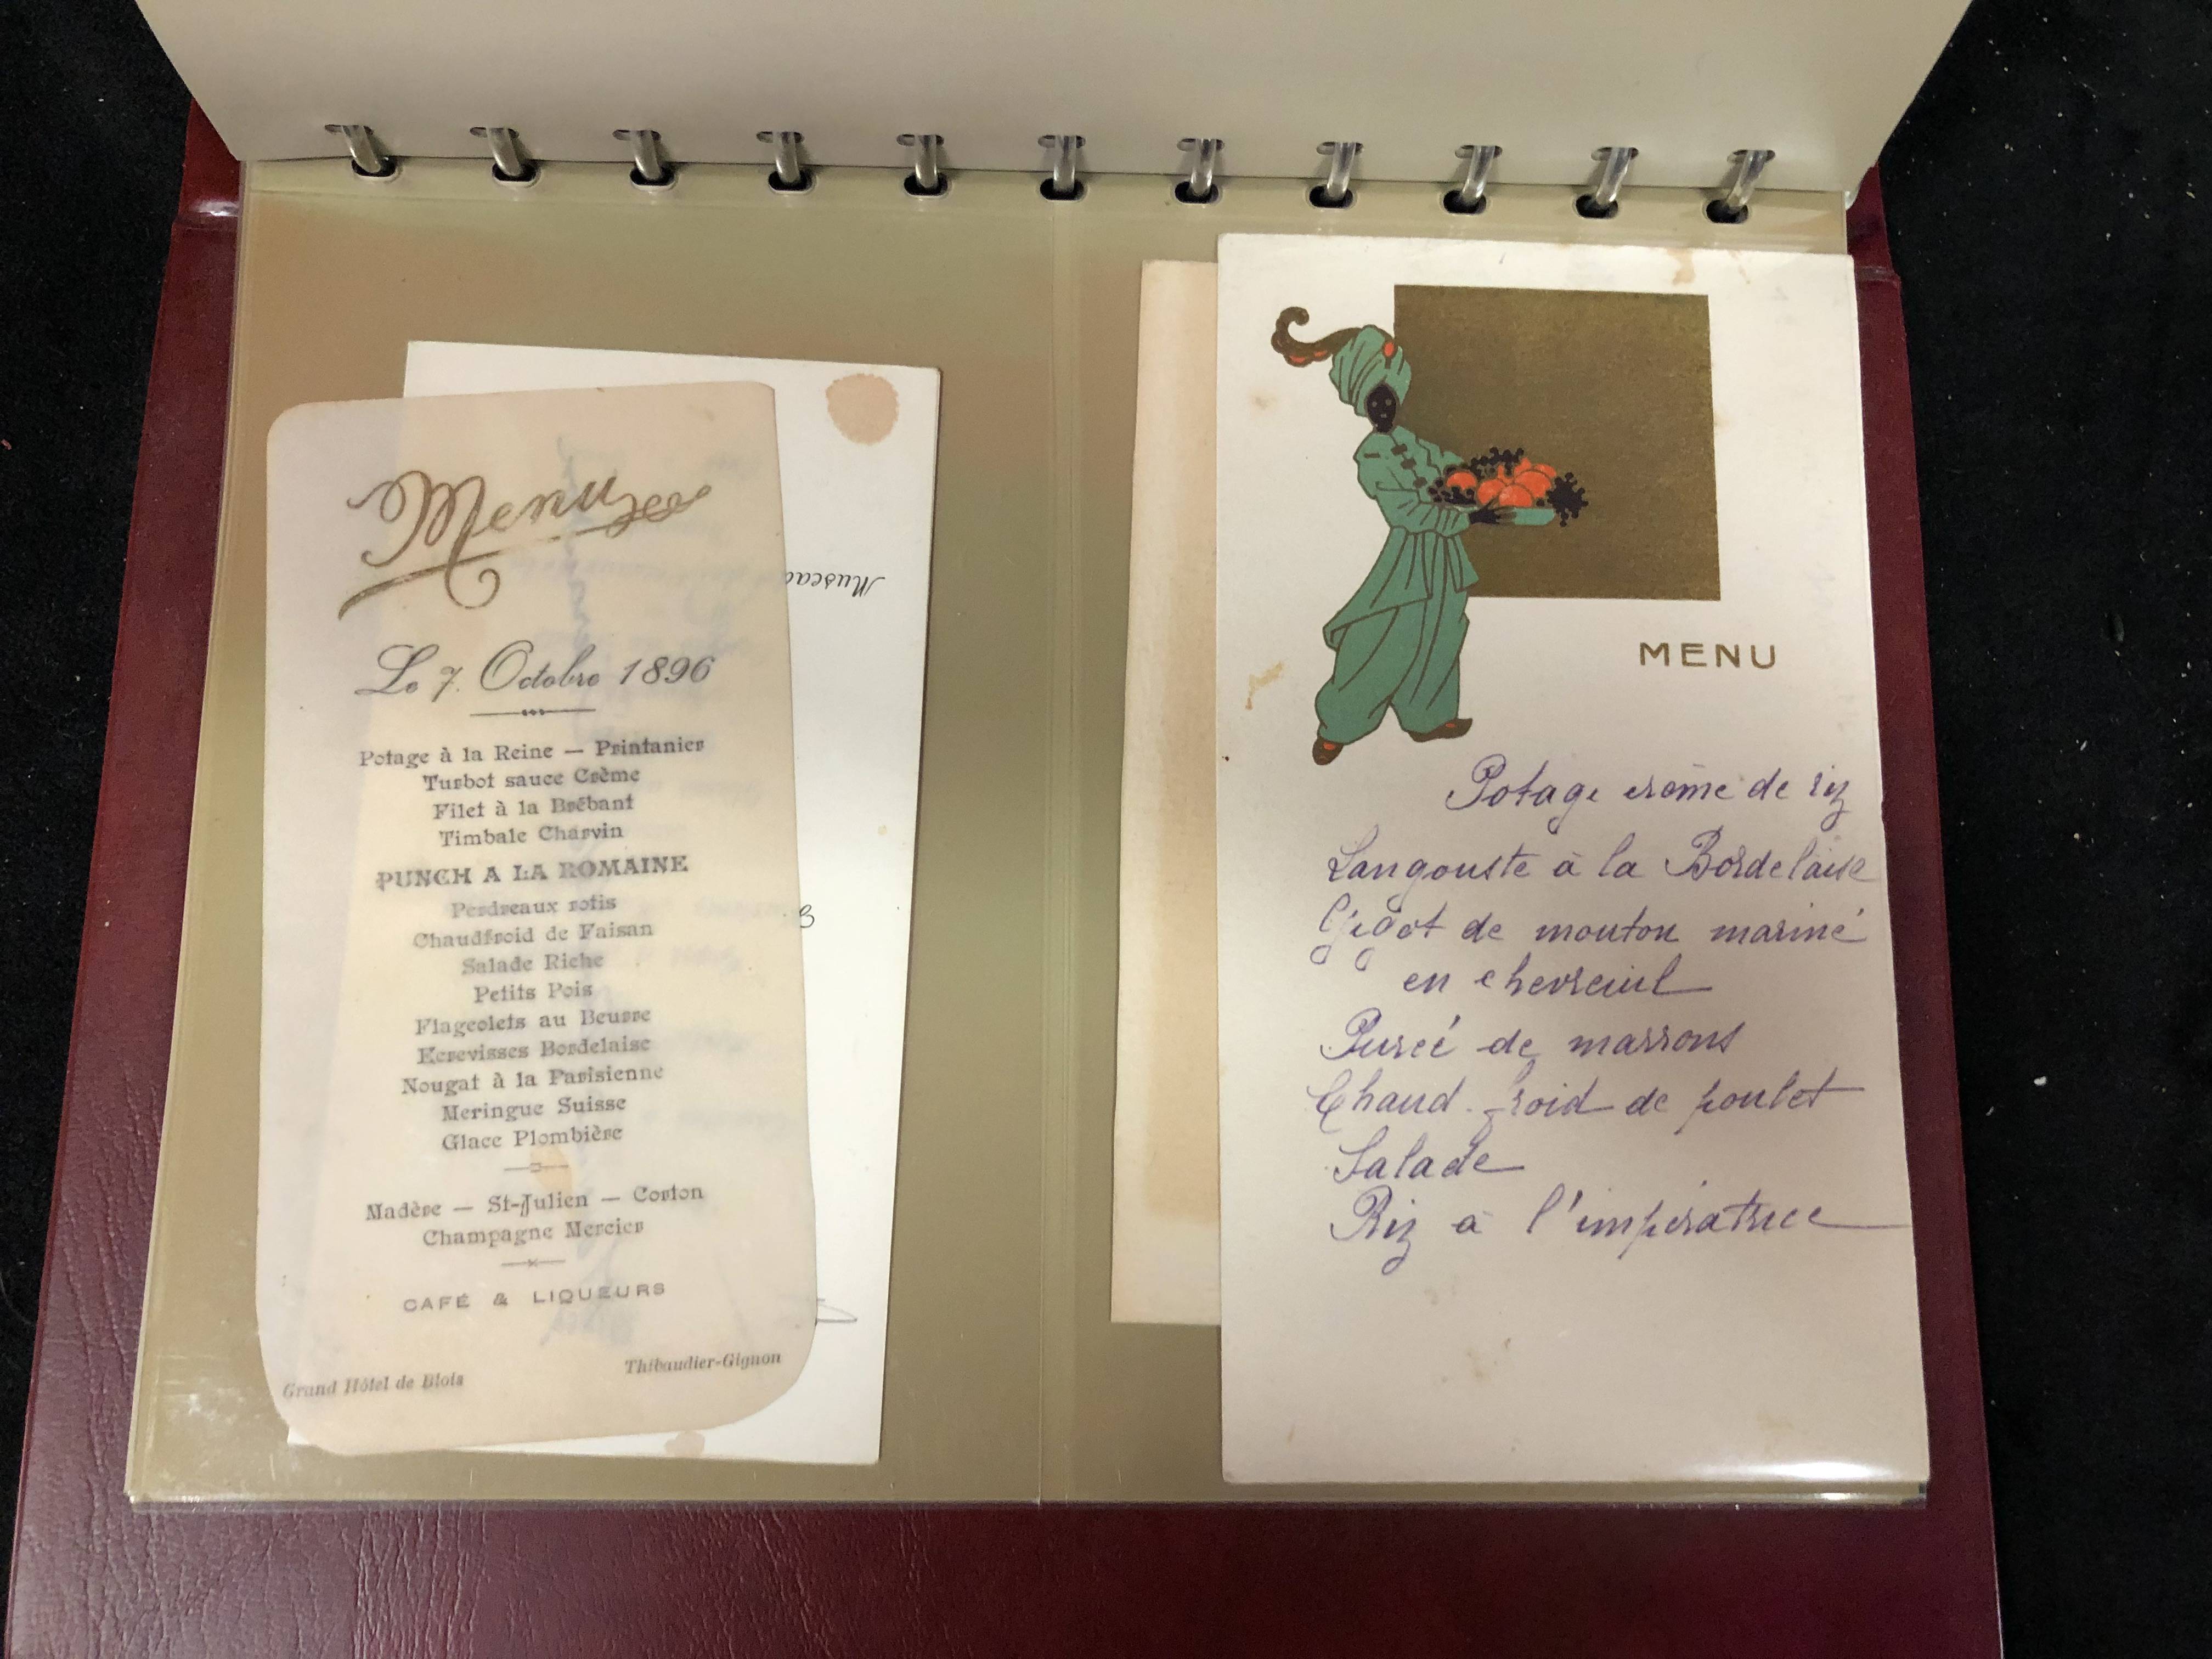 Menu
Le 7. Octobre 1896
Potage à la Reine — Printanier
Turbot sauce Crème
Filet à la Brébant
Timbale Charvin
PUNCH A LA ROMAINE
Perdreaux rotis
Chaudfroid de Faisan
Salade Riche
Petits Pois
Flageolets au Beurre
Ecrevisses Bordelaise
Nougat à la Parisienne
Meringue Suisse
Glace Plombière
Madère — St-Julien — Corton
Champagne Mercier
CAFÉ & LIQUEURS
Grand Hôtel de Blois
Thibaudier-Gignon
MENU
Potage crème de riz
Langouste à la Bordelaise
Gigot de mouton mariné
en chevreuil
Pureé de marrons
Chaud-froid de poulet
Salade
Riz à l'impératrice